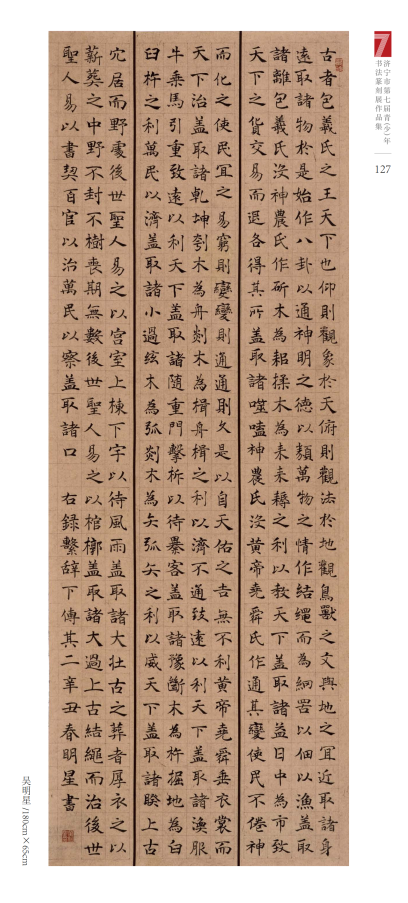 7
济宁市第七届青(少)年
书法篆刻展作品集
127
古者包羲氏之王天下也仰則觀象於天俯則觀法於地觀鳥獸之文與地之宜近取諸身
遠取諸物於是始作八卦以通神明之德以類萬物之情作結繩而為網罟以佃以漁蓋取
諸離包羲氏沒神農氏作斫木為耜揉木為耒耒耨之利以教天下蓋取諸益日中為市致
天下之貨交易而退各得其所蓋取諸噬嗑神農氏沒黄帝堯舜氏作通其變使民不倦神
而化之使民宜之易窮則變變則通通則久是以自天佑之吉無不利黄帝堯舜垂衣裳而
天下治蓋取諸乾坤刳木為舟剡木為楫舟楫之利以濟不通致遠以利天下蓋取諸渙服
牛乘馬引重致遠以利天下蓋取諸隨重門擊柝以待暴客蓋取諸豫斷木為杵掘地為臼
臼杵之利萬民以濟蓋取諸小過弦木為弧剡木為矢弧矢之利以威天下蓋取諸睽上古
穴居而野處後世聖人易之以宫室上棟下宇以待風雨蓋取諸大壯古之葬者厚衣之以
薪葬之中野不封不樹喪期無數後世聖人易之以棺槨蓋取諸大過上古結繩而治後世
聖人易以書契百官以治萬民以察蓋取諸口 右録繫辭下傳其二辛丑春明星書
吴明星/180cm×65cm